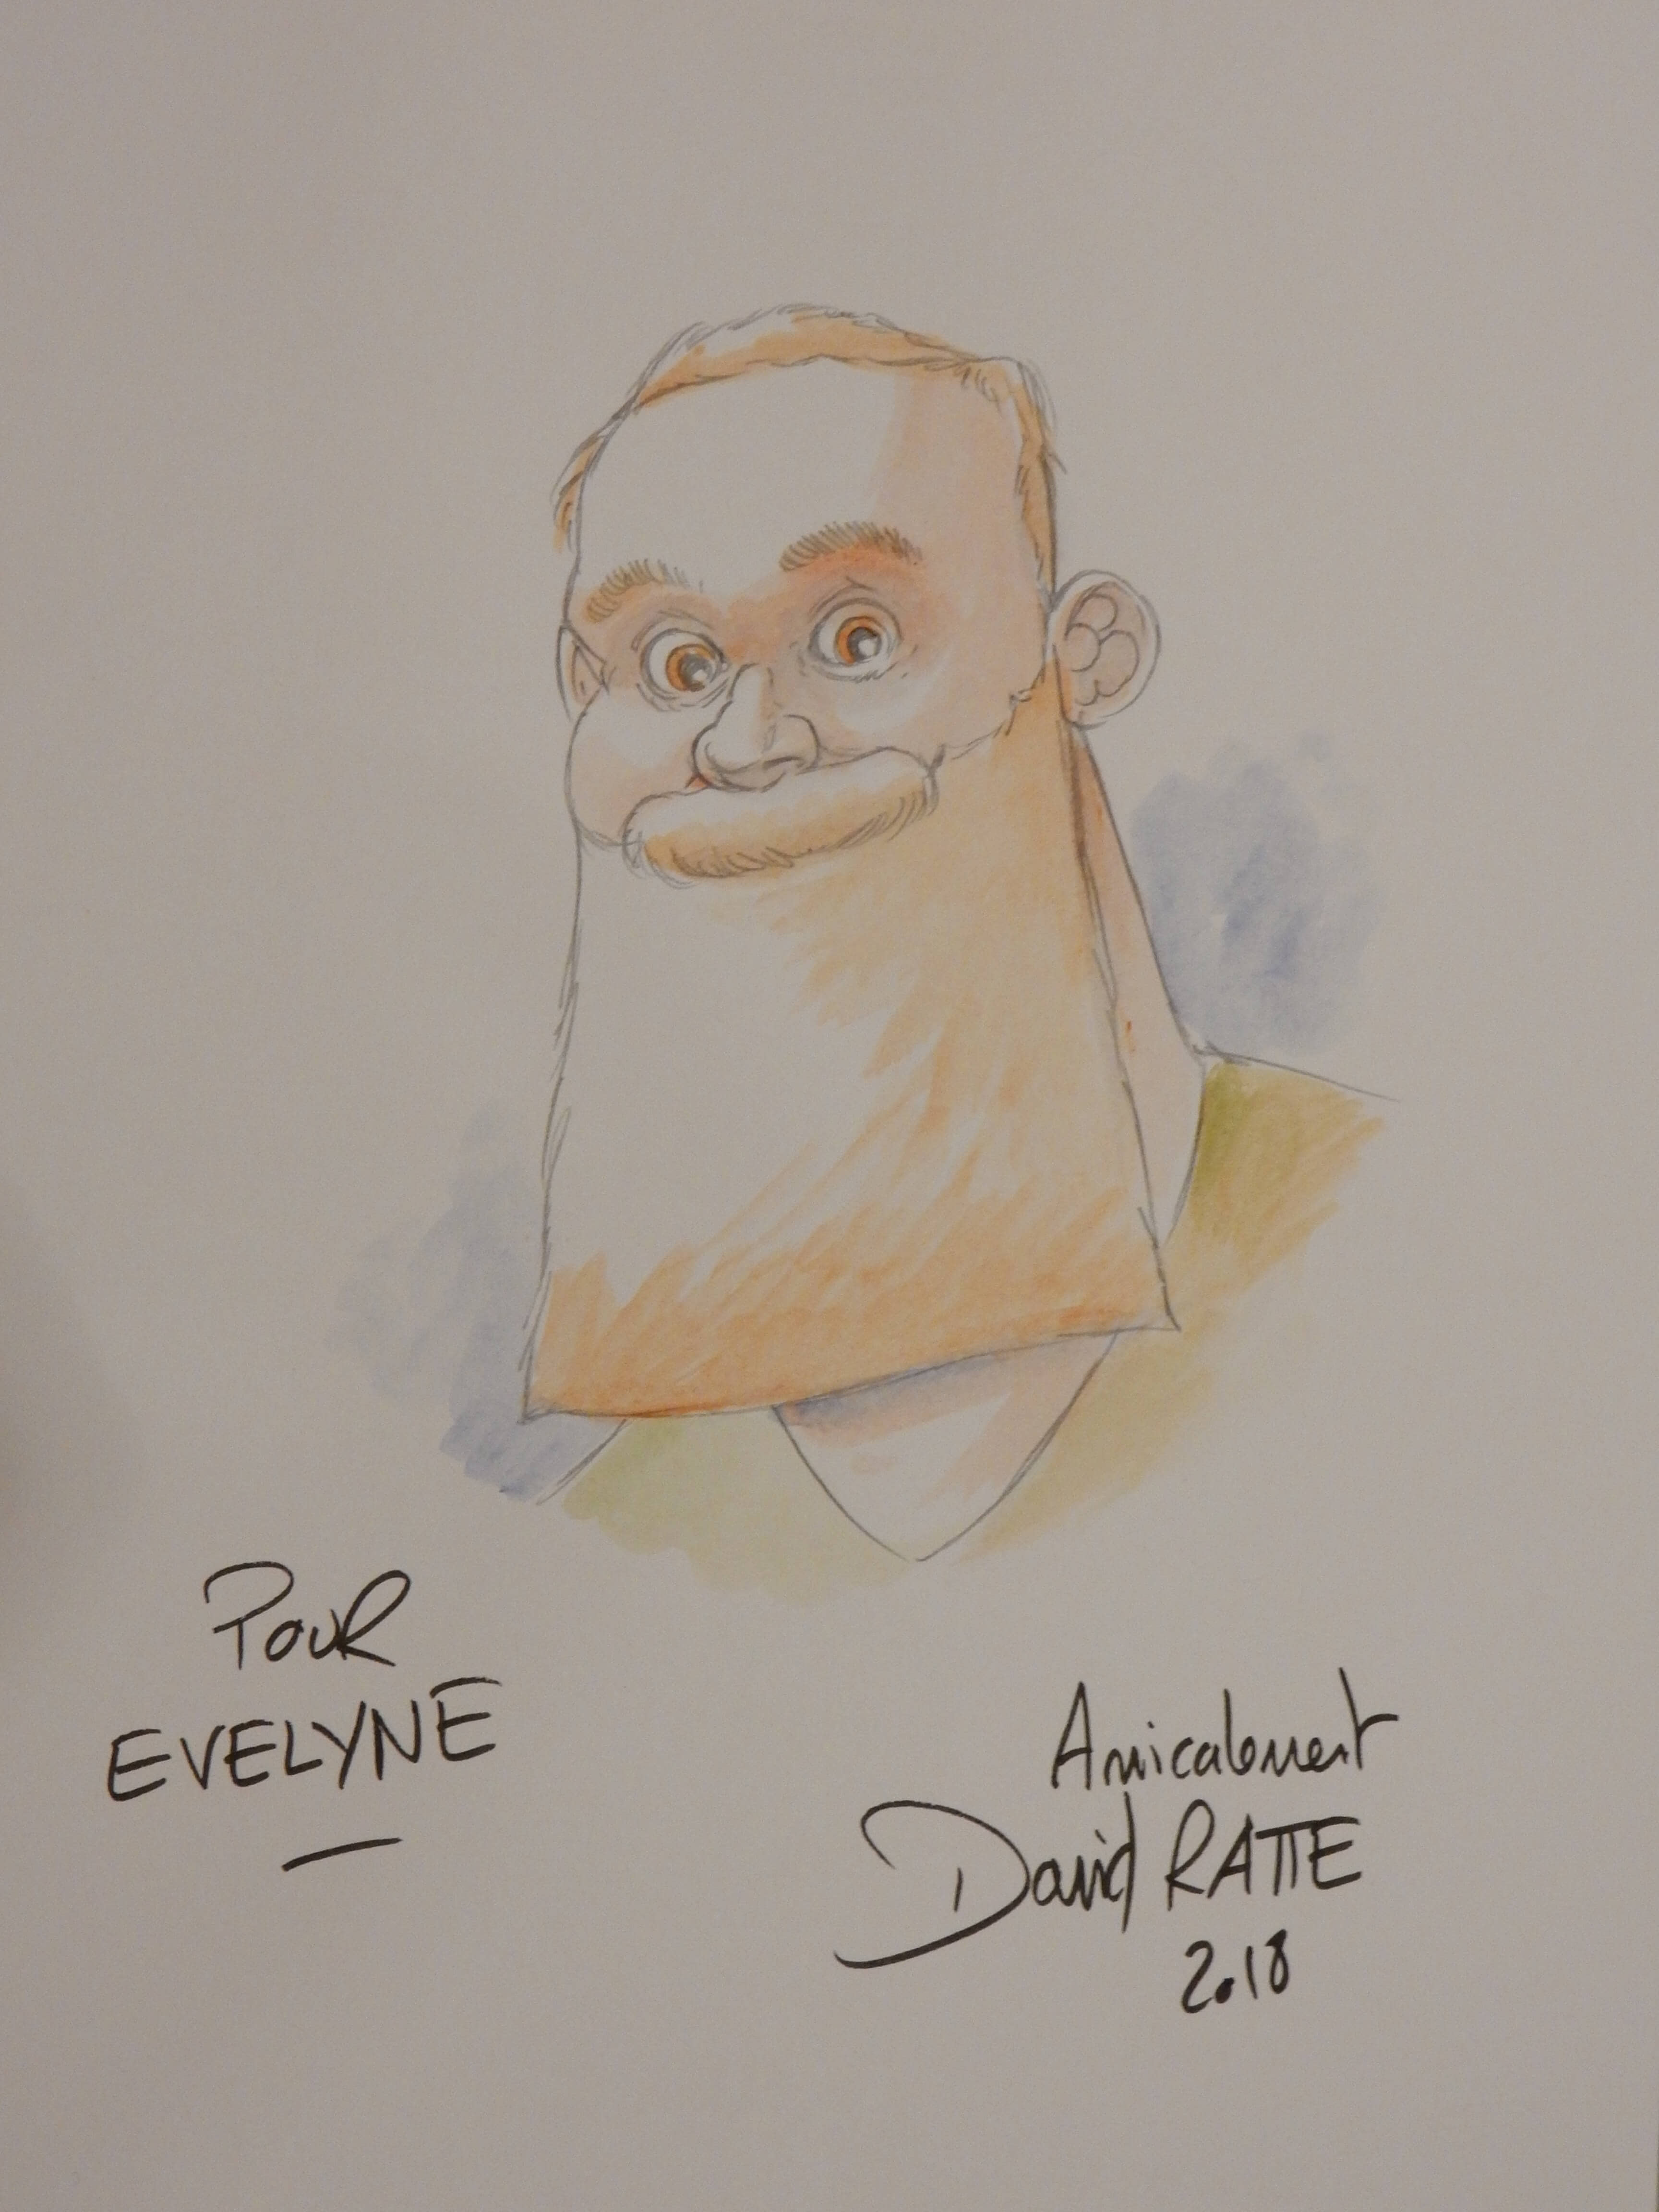 POUR
EVELYNE
Amicalement
David RATTE
2.18